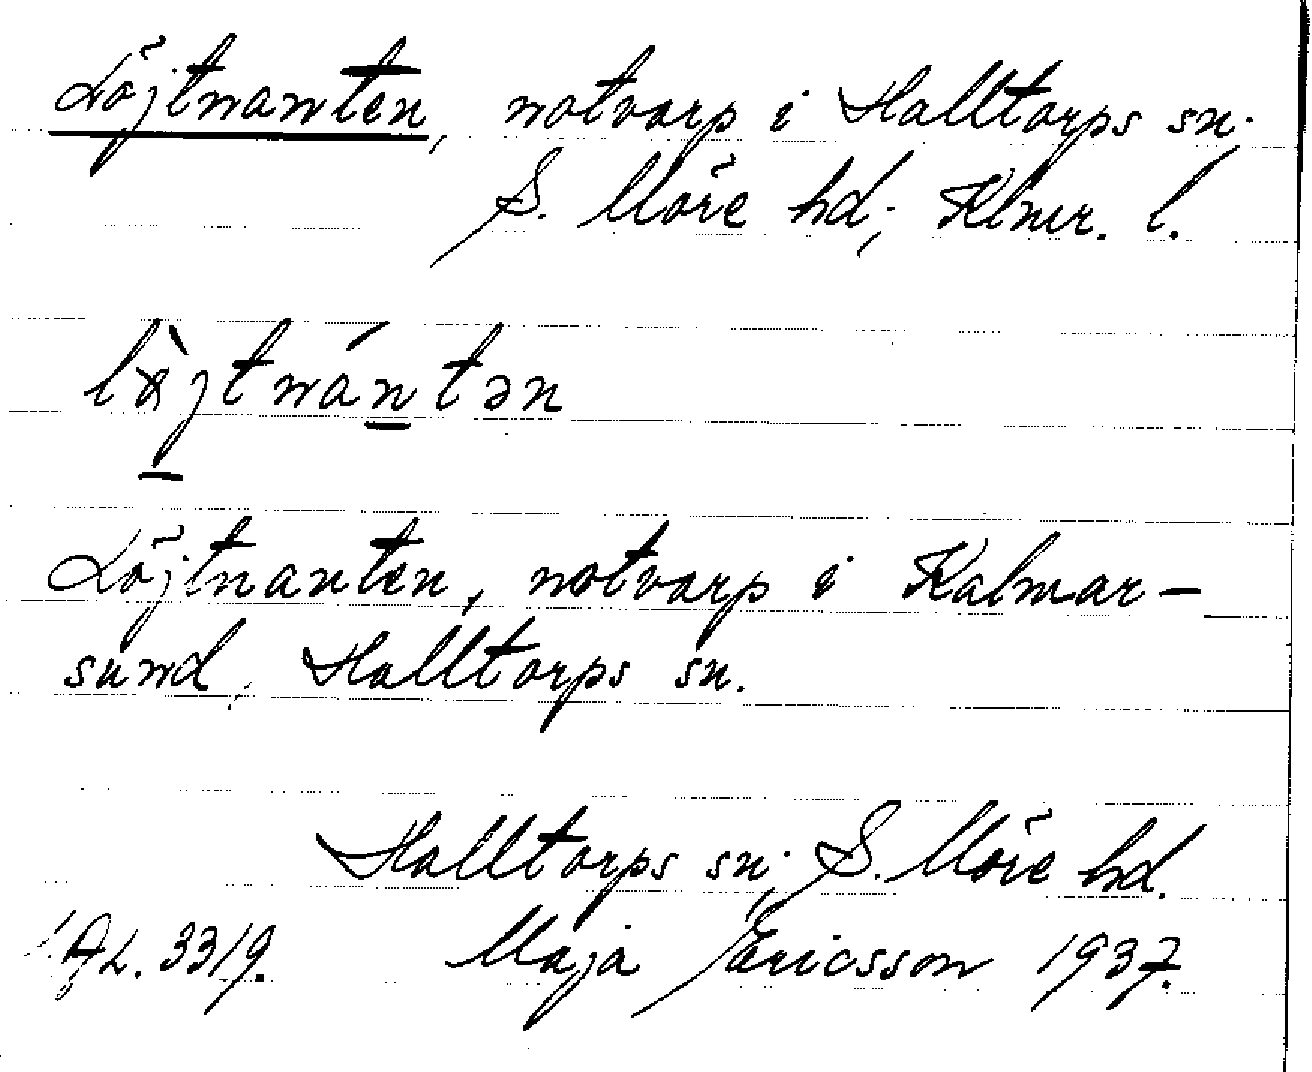 Löjtnanten, notvarp i Halltorps sn;
S. Möre hd; Klmr. l.
lö̀jtnántən
Löjtnanten, notvarp i Kalmar-
sund, Halltorps sn.
Halltorps sn; S. Möre hd.
AL. 3319. Maja Ericsson 1937.